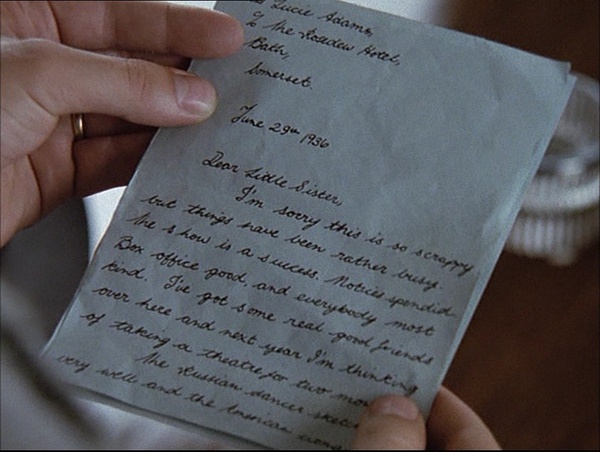 Lucie Adams,
The Hotel,
Bath,
Somerset.
June 29th 1936
Dear Little Sister,
I'm sorry this is so scrappy
but things have been rather busy.
The show is a success. Notices spendid.
Box office good, and everybody most
kind. I've got some real good friends
over here and next year I'm thinking
of taking a theatre for two
The Russian dancer
very well and the American